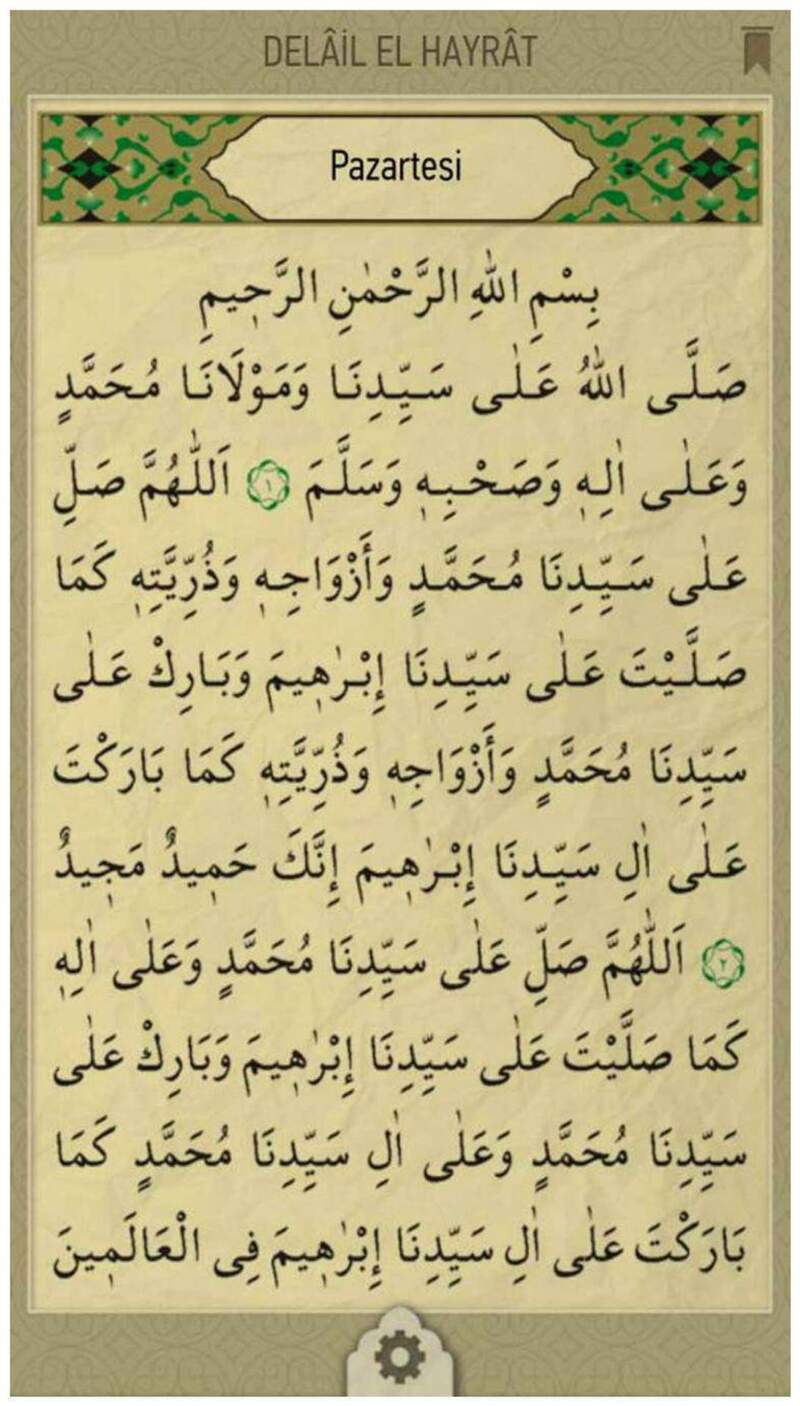 DELÂİL EL HAYRÂT
Pazartesi
بِسْمِ اللّٰهِ الرَّحْمٰنِ الرَّحٖيمِ
صَلَّى اللّٰهُ عَلٰى سَيِّدِنَا وَمَوْلَانَا مُحَمَّدٍ
وَعَلٰى اٰلِهٖ وَصَحْبِهٖ وَسَلَّمَ ١ اَللّٰهُمَّ صَلِّ
عَلٰى سَيِّدِنَا مُحَمَّدٍ وَأَزْوَاجِهٖ وَذُرِّيَّتِهٖ كَمَا
صَلَّيْتَ عَلٰى سَيِّدِنَا إِبْرٰهٖيمَ وَبَارِكْ عَلٰى
سَيِّدِنَا مُحَمَّدٍ وَأَزْوَاجِهٖ وَذُرِّيَّتِهٖ كَمَا بَارَكْتَ
عَلٰى اٰلِ سَيِّدِنَا إِبْرٰهٖيمَ إِنَّكَ حَمٖيدٌ مَجٖيدٌ
٢ اَللّٰهُمَّ صَلِّ عَلٰى سَيِّدِنَا مُحَمَّدٍ وَعَلٰى اٰلِهٖ
كَمَا صَلَّيْتَ عَلٰى سَيِّدِنَا إِبْرٰهٖيمَ وَبَارِكْ عَلٰى
سَيِّدِنَا مُحَمَّدٍ وَعَلٰى اٰلِ سَيِّدِنَا مُحَمَّدٍ كَمَا
بَارَكْتَ عَلٰى اٰلِ سَيِّدِنَا إِبْرٰهٖيمَ فِى الْعَالَمٖينَ